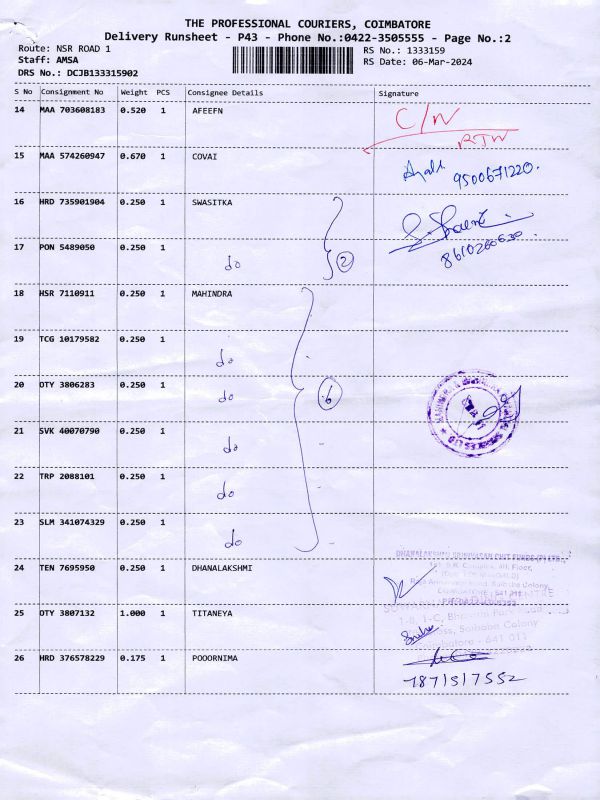 THE PROFESSIONAL COURIERS, COIMBATORE
Delivery Runsheet - P43 - Phone No.:0422-3505555 - Page No.:2
Route: NSR ROAD 1 RS No.: 1333159
Staff: AMSA RS Date: 06-Mar-2024
DRS No.: DCJB133315902
S No Consignment No Weight PCS Consignee Details Signature
14 MAA 703608183 0.520 1 AFEEFN C/N
RTW
15 MAA 574260947 0.670 1 COVAI 9500671220.
16 HRD 735901904 0.250 1 SWASITKA
17 PON 5489050 0.250 1 do 2 8610260630
18 HSR 7110911 0.250 1 MAHINDRA
19 TCG 10179582 0.250 1 do
20 DTY 3806283 0.250 1 do 6
21 SVK 40070790 0.250 1 do
22 TRP 2088101 0.250 1 do
23 SLM 341074329 0.250 1 do
DHANALAKSHMI SRINIVASAN CHIT FUNDS (P) LTD.
24 TEN 7695950 0.250 1 DHANALAKSHMI
25 DTY 3807132 1.000 1 TITANEYA
Saibaba Colony
Coimbatore - 641 011
26 HRD 376578229 0.175 1 POOORNIMA
7871517552